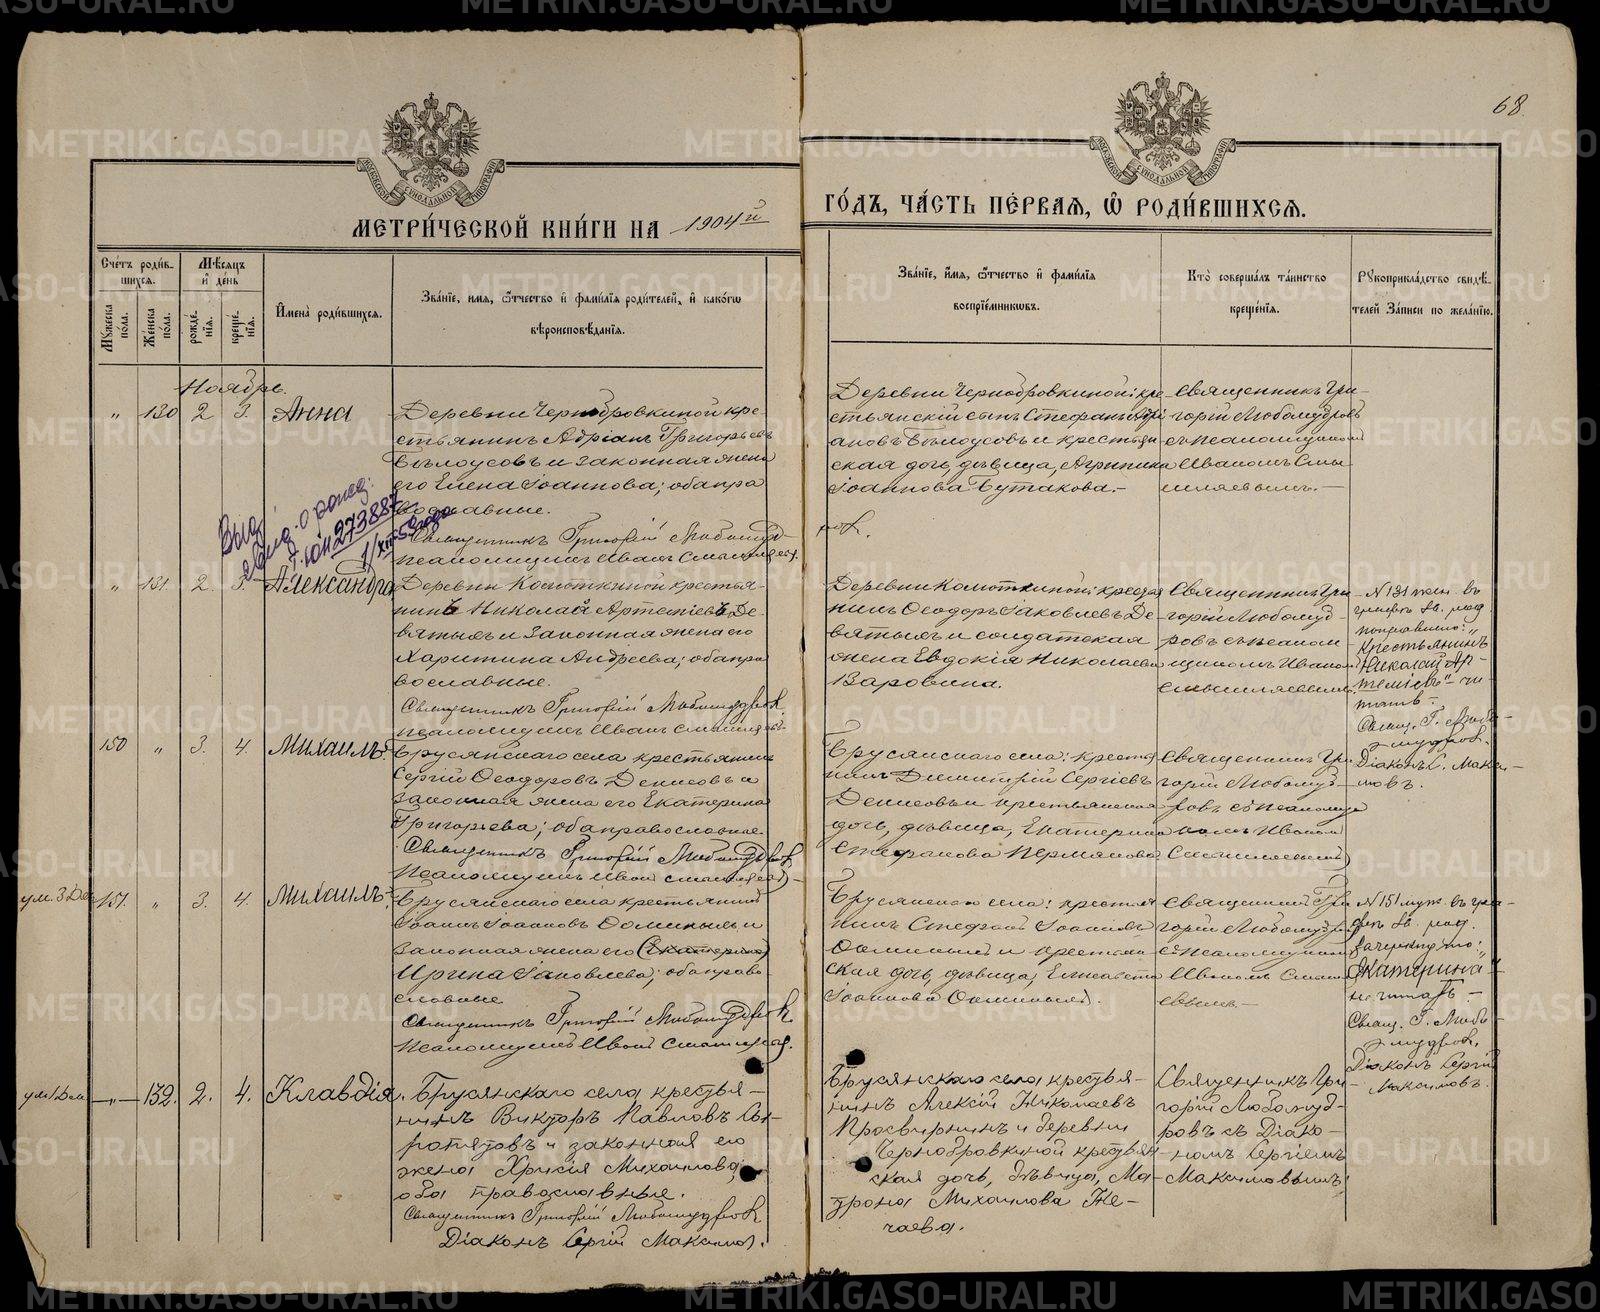 68.
МЕТРИ́ЧЕСКОЙ КНИ́ГИ НА 1904й
ГО́ДЪ, ЧА́СТЬ ПЕ́РВАЯ, Ѡ҆ РОДИ́ВШИХСЯ.
Сче́тъ роди́в-
шихся.
Мѣ́сяцъ
и҆ де́нь
Мꙋ́жеска
по́ла.
Же́нска
по́ла.
рожде́-
нїя.
креще́-
нїя.
И҆мена̀ роди́вшихся.
Зва́нїе, и҆мя, ѻ҆́тчество и҆ фами́лїя роди́телей, и҆ како́гѡ
вѣроисповѣ́данїя.
Зва́нїе, и҆́мя, ѻ҆́тчество и҆ фами́лїя
воспрїе́мниковъ.
Кто̀ соверша́лъ та́инство
креще́нїя.
Рꙋкоприкла́дство свидѣ́-
телей за́писи по жела́нїю.
Ноябрь.
" 130 2 3. Анна
Деревни Чернобровкиной кре-
стьянинъ Адріанъ Григорьевъ
Бѣлоусовъ и законная жена
его Елена Іоаннова; оба пра
вославные.
Священникъ Григорій Любомудровъ
псаломщикъ Иванъ Смышляевъ.
Деревни Чернобровкиной кре-
стьянскій сынъ Стефанъ Адрі
ановъ Бѣлоусовъ и крестьян
ская дочь, дѣвица, Агрипина
Іоаннова Бутакова.-
Священникъ Гри-
горій Любомудровъ
съ псаломщикомъ
Иваномъ Смы-
шляевымъ.-
" 131. 2. 3. Александра
Деревни Колоткиной крестья-
нинъ Николай Артеміевъ Де-
вятыхъ и законная жена его
Харитина Андреева; оба пра
вославные.
Священникъ Григорій Любомудровъ
псаломщикъ Иванъ Смышляевъ
Деревни Колоткиной крестья
нинъ Ѳеодоръ Іаковлевъ Де-
вятыхъ и солдатская
жена Евдокія Николаева
Варовина.
Священникъ Гри
горій Любомуд-
ровъ съ псалом
щикомъ Иваномъ
Смышляевымъ.
N 131 жен. въ
графѣ зв. род.
поправлено: „
Крестьянинъ
Николай Ар-
теміевъ" чи-
тать.
Свящ. Г. Любо-
мудровъ.
Діаконъ С. Макси-
мовъ.
150 " 3. 4. Михаилъ.
Брусянскаго села крестьянинъ
Сергій Ѳеодоровъ Денисовъ и
законная жена его Екатерина
Григорьева; оба православные.
Священникъ Григорій Любомудровъ
Псаломщикъ Иванъ Смышляевъ
Брусянскаго села: крестья
нинъ Димитрій Сергіевъ
Денисовъ и крестьянская
дочь, дѣвица, Екатерина
Стефанова Пермякова
Священникъ Гри
горій Любомуд-
ровъ съ псаломщи
комъ Иваномъ
Смышляевымъ
ум. 3 Дек. 151. " 3. 4. Михаилъ.
Брусянскаго села крестьянинъ
Іоаннъ Іоанновъ и
законная жена его (Екатерина)
Ирина Іаковлева; оба право-
славные
Священникъ Григорій Любомудровъ.
Псаломщикъ Иванъ Смышляевъ.
Брусянскаго села: крестья
нинъ Стефанъ Іоанновъ
и крестьян
ская дочь, дѣвица, Елисавета
Іоаннова
Священникъ Гри
горій Любомудровъ
съ псаломщикомъ
Иваномъ Смышля
евымъ.-
N 151 муж. въ гра-
фѣ зв. род.
зачеркнуто: „
Екатерина"
не читать.-
Свящ. Г. Любо-
мудровъ.
Діаконъ Сергій
Максимовъ.
-"- 132. 2. 4. Клавдія.
Брусянскаго села крестья-
нинъ Викторъ Павловъ Сы-
ропятовъ и законная его
жена Михаилова,
оба православные.
Священникъ Григорій Любомудровъ
Діаконъ Сергій Максимовъ.
Брусянскаго села крестья-
нинъ Алексій Николаевъ
Просвирнинъ и деревни
Чернобровкиной крестьян
ская дочь, дѣвица, Ма-
трона Михаилова Не-
чаева.
Священникъ Гри
горій Любомуд-
ровъ съ Діако-
номъ Сергіемъ
Максимовымъ.
METRIKI.GASO-URAL.RU